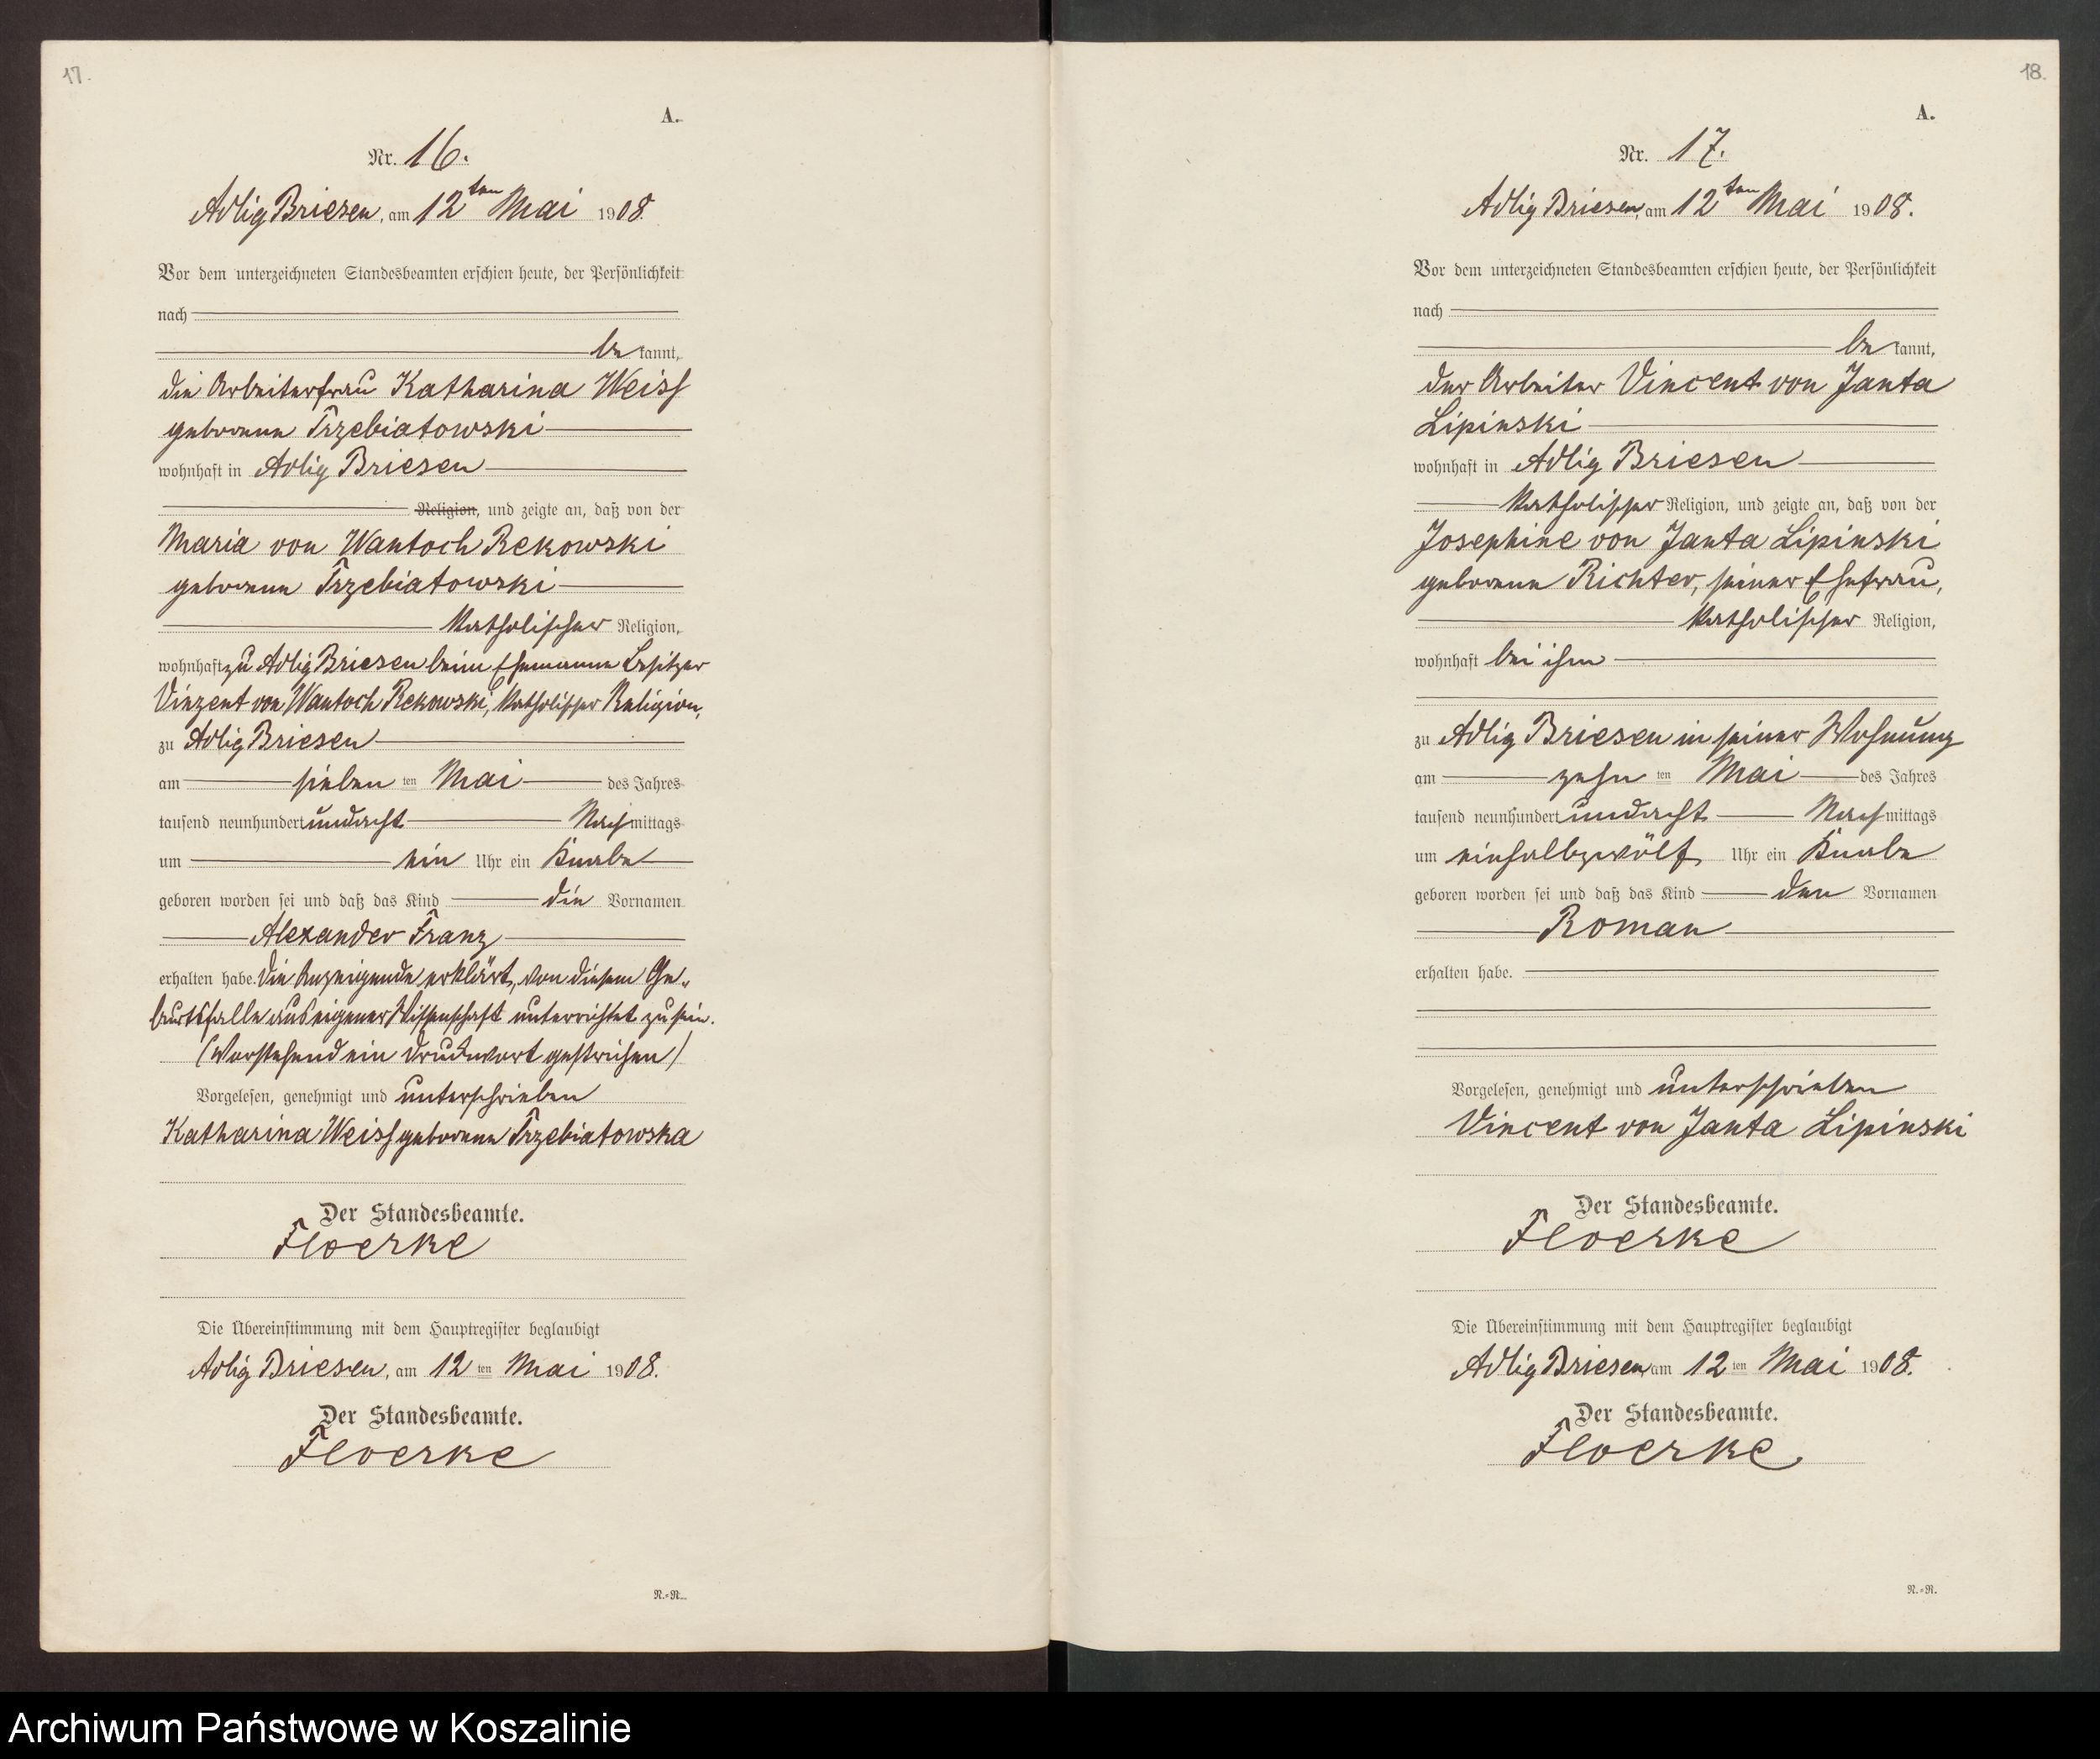 17.
A.
Nr. 16.
Adlig Briesen, am 12ten Mai 1908.
Vor dem unterzeichneten Standesbeamten erschien heute, der Persönlichkeit
nach
be kannt,
die Arbeiterfrau Katharina Weiss
geborene Trzebiatowski
wohnhaft in Adlig Briesen
Religion, und zeigte an, daß von der
Maria von Wantoch Rekowski
geborene Trzebiatowski
katholischer Religion,
wohnhaft zu Adlig Briesen beim Ehemanne Besitzer
Vinzent von Wantoch Rekowski, katholischer Religion,
zu Adlig Briesen
am sieben ten Mai des Jahres
tausend neunhundert undacht Nachmittags
um ein Uhr ein Knabe
geboren worden sei und daß das Kind die Vornamen
Alexander Franz
erhalten habe. Die Anzeigende erklärt, von diesem Ge-
burtsfalle aus eigener Wissenschaft unterrichtet zu sein.
(Vorstehend ein Druckwort gestrichen)
Vorgelesen, genehmigt und unterschrieben
Katharina Weiss geborene Trzebiatowska
Der Standesbeamte.
Floerke
Die Übereinstimmung mit dem Hauptregister beglaubigt
Adlig Briesen, am 12 ten Mai 1908.
Der Standesbeamte.
Floerke
N.-R.
18.
A.
Nr. 17.
Adlig Briesen, am 12ten Mai 1908.
Vor dem unterzeichneten Standesbeamten erschien heute, der Persönlichkeit
nach
be kannt,
der Arbeiter Vincent von Janta
Lipinski
wohnhaft in Adlig Briesen
katholischer Religion, und zeigte an, daß von der
Josephine von Janta Lipinski
geborene Richter, seiner Ehefrau,
katholischer Religion,
wohnhaft bei ihm
zu Adlig Briesen in seiner Wohnung
am zehn ten Mai des Jahres
tausend neunhundert undacht Nachmittags
um einhalbzwölf Uhr ein Knabe
geboren worden sei und daß das Kind den Vornamen
Roman
erhalten habe.
Vorgelesen, genehmigt und unterschrieben
Vincent von Janta Lipinski
Der Standesbeamte.
Floerke
Die Übereinstimmung mit dem Hauptregister beglaubigt
Adlig Briesen, am 12 ten Mai 1908.
Der Standesbeamte.
Floerke
N.-R.
Archiwum Państwowe w Koszalinie